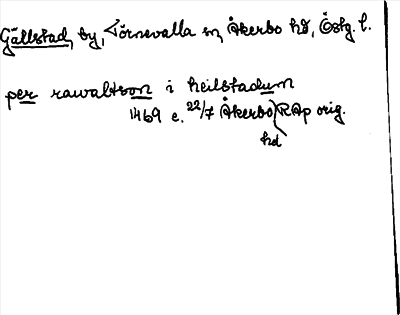 Gällstad, by, Törnevalla sn, Åkerbo hd, Östg. l.
per rawaltson i heilstadum
1469 e. 22/7 Åkerbo RAp orig.
hd